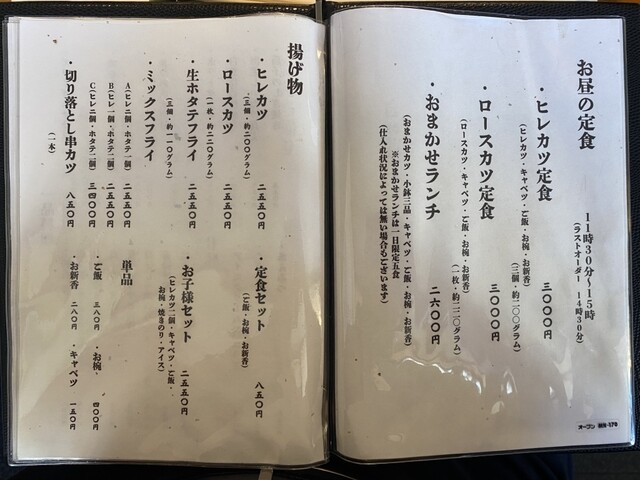 お昼の定食
11時30分〜15時
(ラストオーダー 14時30分)
・ヒレカツ定食 三〇〇〇円
(ヒレカツ・キャベツ・ご飯・お椀・お新香)
(三個・約二〇〇グラム)
・ロースカツ定食 三〇〇〇円
(ロースカツ・キャベツ・ご飯・お椀・お新香)
(一枚・約二二〇グラム)
・おまかせランチ 二六〇〇円
(おまかせカツ・小鉢三品・キャベツ・ご飯・お椀・お新香)
※おまかせランチは一日限定五食
(仕入れ状況によっては無い場合もございます)
オープン MN-170
揚げ物
・ヒレカツ 二五五〇円
(三個・約二〇〇グラム)
・ロースカツ 二五五〇円
(一枚・約二二〇グラム)
・生ホタテフライ 二五五〇円
(三個・約二一〇グラム)
・ミックスフライ
A(ヒレ二個・ホタテ一個) 二五五〇円
B(ヒレ一個・ホタテ二個) 二五五〇円
C(ヒレ二個・ホタテ二個) 三四〇〇円
・切り落とし串カツ 八五〇円
(一本)
・定食セット 八五〇円
(ご飯・お椀・お新香)
・お子様セット 二五五〇円
(ヒレカツ二個・キャベツ・ご飯・
お椀・焼きのり・アイス)
単品
・ご飯 三八〇円 ・お椀 四〇〇円
・お新香 二八〇円 ・キャベツ 一五〇円